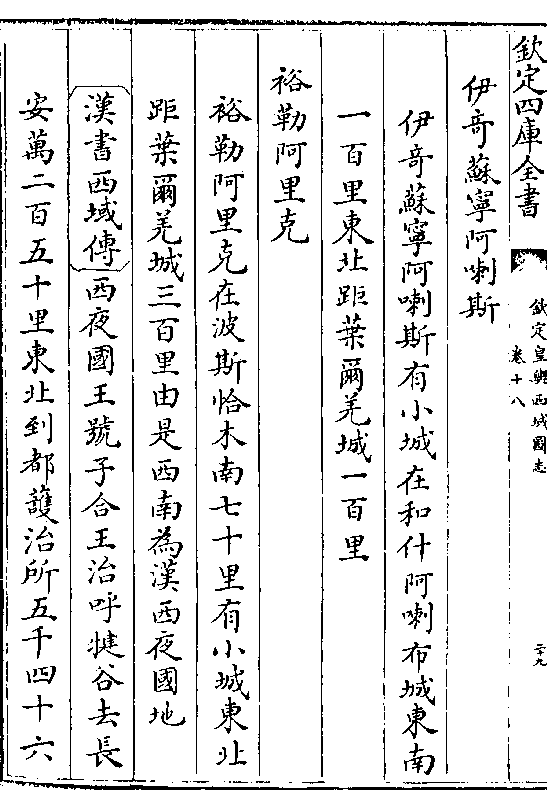 欽定四庫全書
欽定皇輿西域圖志
卷十八
二十九
伊竒蘇寧阿喇斯
伊竒蘇寧阿喇斯有小城在和什阿喇布城東南
一百里東北距葉爾羌城一百里
裕勒阿里克
裕勒阿里克在波斯恰木南七十里有小城東北
距葉爾羌城三百里由是西南為漢西夜國地
漢書西域傳西夜國王號子合王治呼犍谷去長
安萬二百五十里東北到都護治所五千四十六